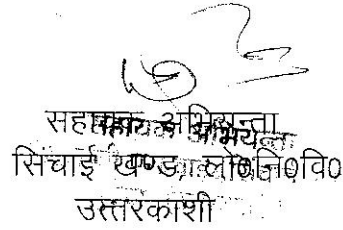 सहायक अभियन्ता
सिंचाई खण्ड, लो०नि०वि०
उत्तरकाशी